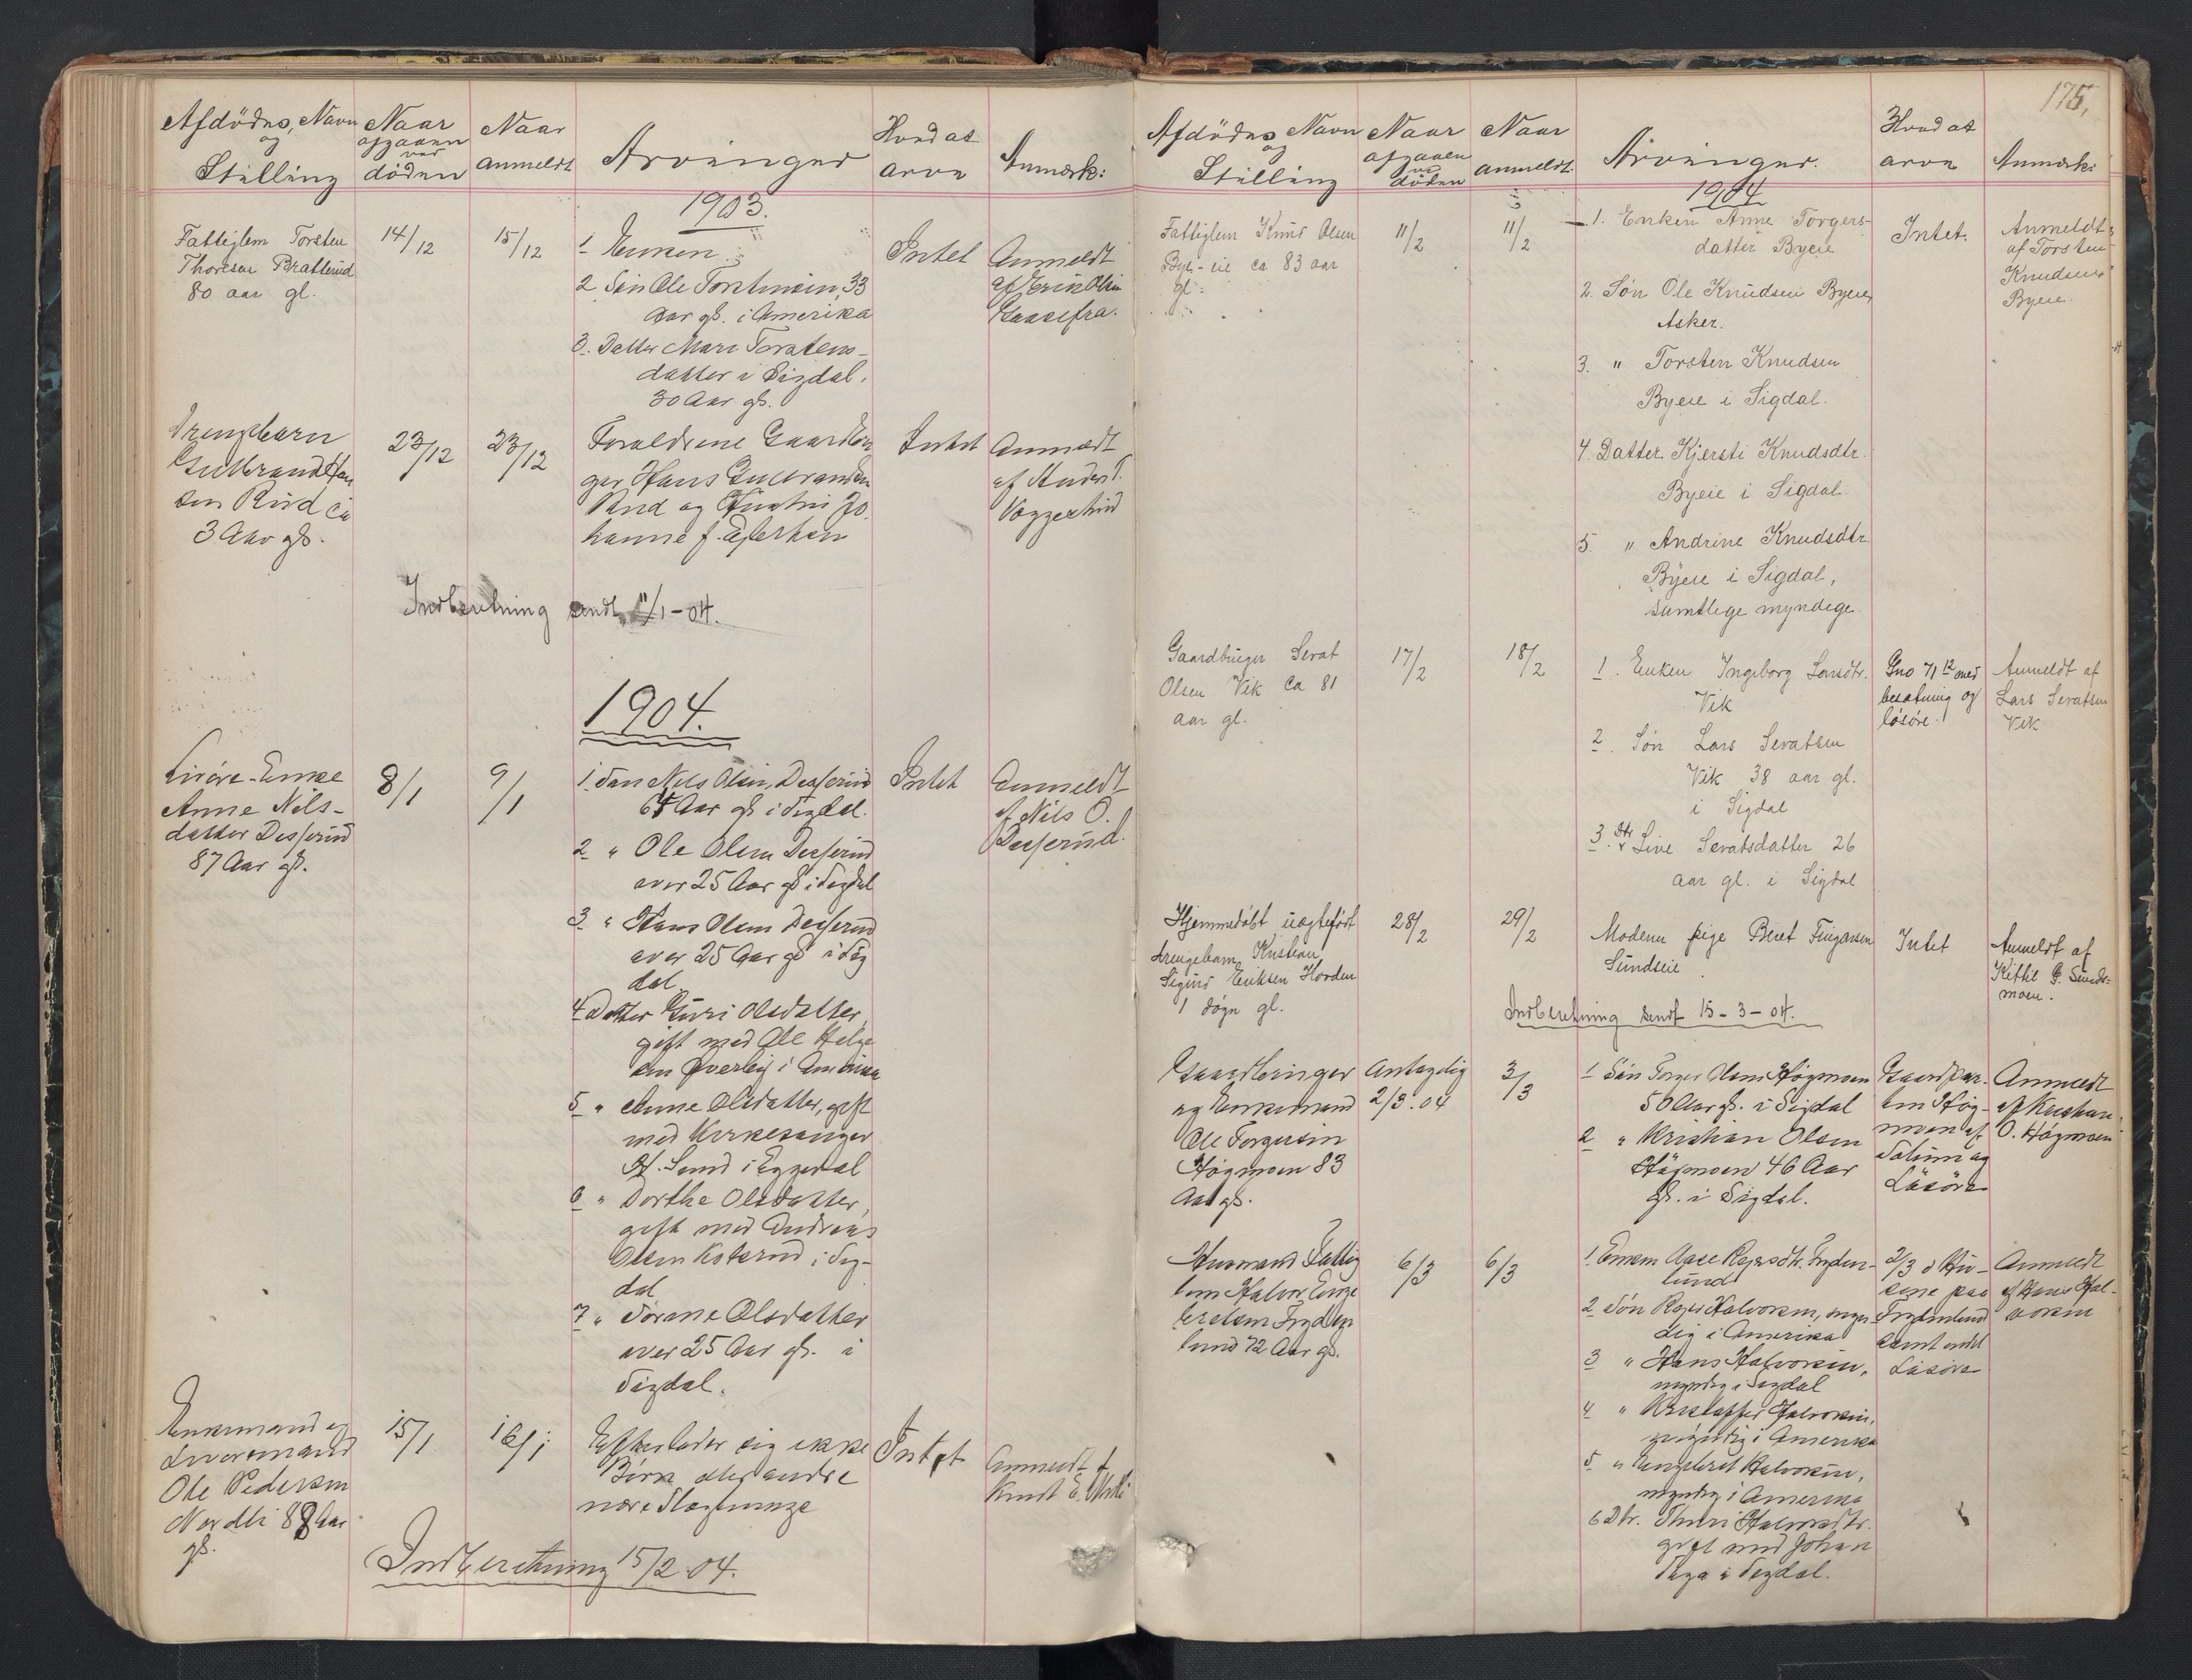 Afdödes Navn
og
Stilling
Naar
afgaaen
ved
döden
Naar
anmeldt
Arvinger
Hvad at
arve
Anmærk:
1903.
Fattiglem Torsten
Thoresen Bratterud
80 aar gl.
14/12
15/12
1 Enken
2 Sön Ole Torstensen, 33
Aar gl. i Amerika
3. Datter Mari Torstens-
datter i Sigdal.
30 Aar gl.
Intet
Anmeldt
af Erik Olsen
Drengebarn
Gulbrand Han
sen Rud ca
3 Aar gl.
23/12
23/12
Forældrene Gaardbru
ger Hans Gulbrandsen
Rud og Hustru Jo
hanne f.
Intet
Anmeldt
af Anders T.
Indberetning sendt 11/1-04.
1904.
Livöre-Enke
Anne Nils-
datter Desserud
87 Aar gl.
8/1
9/1
1. Søn Nils Olsen Desserud
64 Aar gl i Sigdal.
2 " Ole Olsen Desserud
over 25 Aar gl i Sigdal
3 " Hans Olsen Desserud
over 25 Aar gl i Sig
dal.
4 Datter Guri Olsdatter,
gift med Ole Helge
sen i Amerika
5 " Anne Olsdatter, gift
med Kirkesanger
Sand i Eggedal
6 " Dorthe Olsdatter,
gift med Andreas
Olsen i Sig-
dal
7 " Torane Olsdatter
over 25 Aar gl. i
Sigdal.
Intet
Anmeldt
af Nils O.
Desserud.
Enkemand og
Livöremand
Ole Pedersen
Nordli 88 Aar
gl.
15/1
16/1
Efterlader sig ikke
Börn eller andre
nære Slægtninge
Intet
Anmeldt af
Knut E.
Indberetning 15/2 04.
175,
Afdödes Navn
og
Stilling
Naar
afgaaen
ved
döden
Naar
anmeldt.
Arvinger.
Hvad at
arve
Anmærk:
1904
Fattiglem Knud Olsen
Bye-eie ca 83 aar
gl.
11/2
11/2
1. Enken Anne Torgers-
datter Byeie
2. Søn Ole Knudsen Byeie
Asker.
3. " Torsten Knudsen
Byeie i Sigdal.
4. Datter Kjersti Knudsdtr.
Byeie i Sigdal.
5. " Andrine Knudsdtr.
Byeie i Sigdal,
samtlige myndige.
Intet.
Anmeldt
af Torsten
Knudsen
Byeie.
Gaardbruger Sevat
Olsen Vik ca 81
aar gl.
17/2
18/2
1. Enken Ingeborg Larsdtr.
Vik
2. Søn Lars Sevatsen
Vik 38 aar gl.
i Sigdal
3. Dtr Live Sevatsdatter 26
aar gl. i Sigdal
Gno 71 med
besætning og
løsøre.
Anmeldt af
Lars Sevatsen
Vik
Hjemmedøbt uægtefødt
drengebarn Kristian
Sigurd Eriksen Hovden
1 døgn gl.
28/2
29/2
Moderen pige Beret
Sundseie
Intet
Anmeldt af
Kittil G. Sunds-
moen.
Indberetning sendt 15-3-04.
Gaardbruger
og Enkemand
Ole Torgersen
Högmoen 83
Aar gl.
Antagelig
2/3.04
3/3
1 Sön Torger Olsen Högmoen
50 Aar gl. i Sigdal
2 " Kristian Olsen
Högmoen 46 Aar
gl. i Sigdal.
Gaardpar-
ten Hög-
moen af
og
Lösöre
Anmeldt
af Kristian
O. Högmoen
Husmand Fattig
lem Halvor Enge
bretsen Fryden
lund 72 Aar gl.
6/3
6/3
1. Enken Aase Rejersdtr. Fryden-
lund
2 Søn Rejer Halvorsen, myn-
dig i Amerika
3 " Hans Halvorsen,
myndig i Sigdal
4 " Kristoffer Halvorsen,
myndig i Amerika
5. " Engebret Halvorsen,
myndig i Amerika
6 Dtr. Thuri Halvorsdtr.
gift med Johan
i Sigdal.
2/3 i Hu-
sene paa
Frydenlund
samt endel
Lösöre
Anmeldt
af Hans Hal-
vorsen